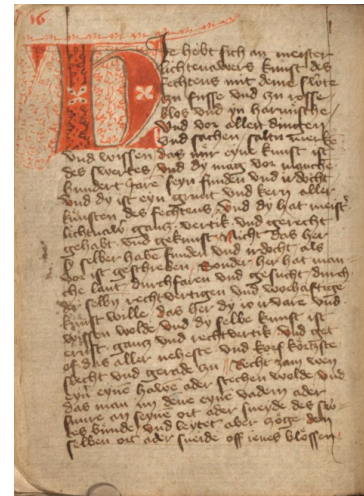 16
Hie hebt sich an meister
lichtenawers kunst des
fechtens mit deme swerte
czu fusse vnd czu rosse
blos vnd yn harnüsche
Vnd vor allen dingen
vnd sachen saltu merkē
vnd wissen das nür eyne kunst ist
des swertes vnd dy mag vor manche
hundert jare seyn funden vnd irdocht
vnd dy ist eyn grunt vnd kern aller
künsten des fechtens vnd dy hat meist'
lichtnaw' gancz vertik vnd gerecht
gehabt vnd gekunst Nicht das her
sy selber habe funden vnd irdocht als
vor ist geschreben Sonder her hat man
che lant durchfaren vnd gesucht durch
der selbn rechtvertigen vnd worhaftigē
kunst wille das her dy io irvare vnd
wissen wolde vnd dy selbe kunst ist
ernst gancz vnd rechtvertik vnd get
of das aller neheste vnd körczste
slecht vnd gerade czu Recht zam wen
eyn' eynē hawē ader stechen wolde vnd
das man im dēne eynē vadem ader
snure an seynē ort ader sneyde des sw'
tes bünde vnd leytet aber czöge den
selben ort ader sneide off ienes blössen